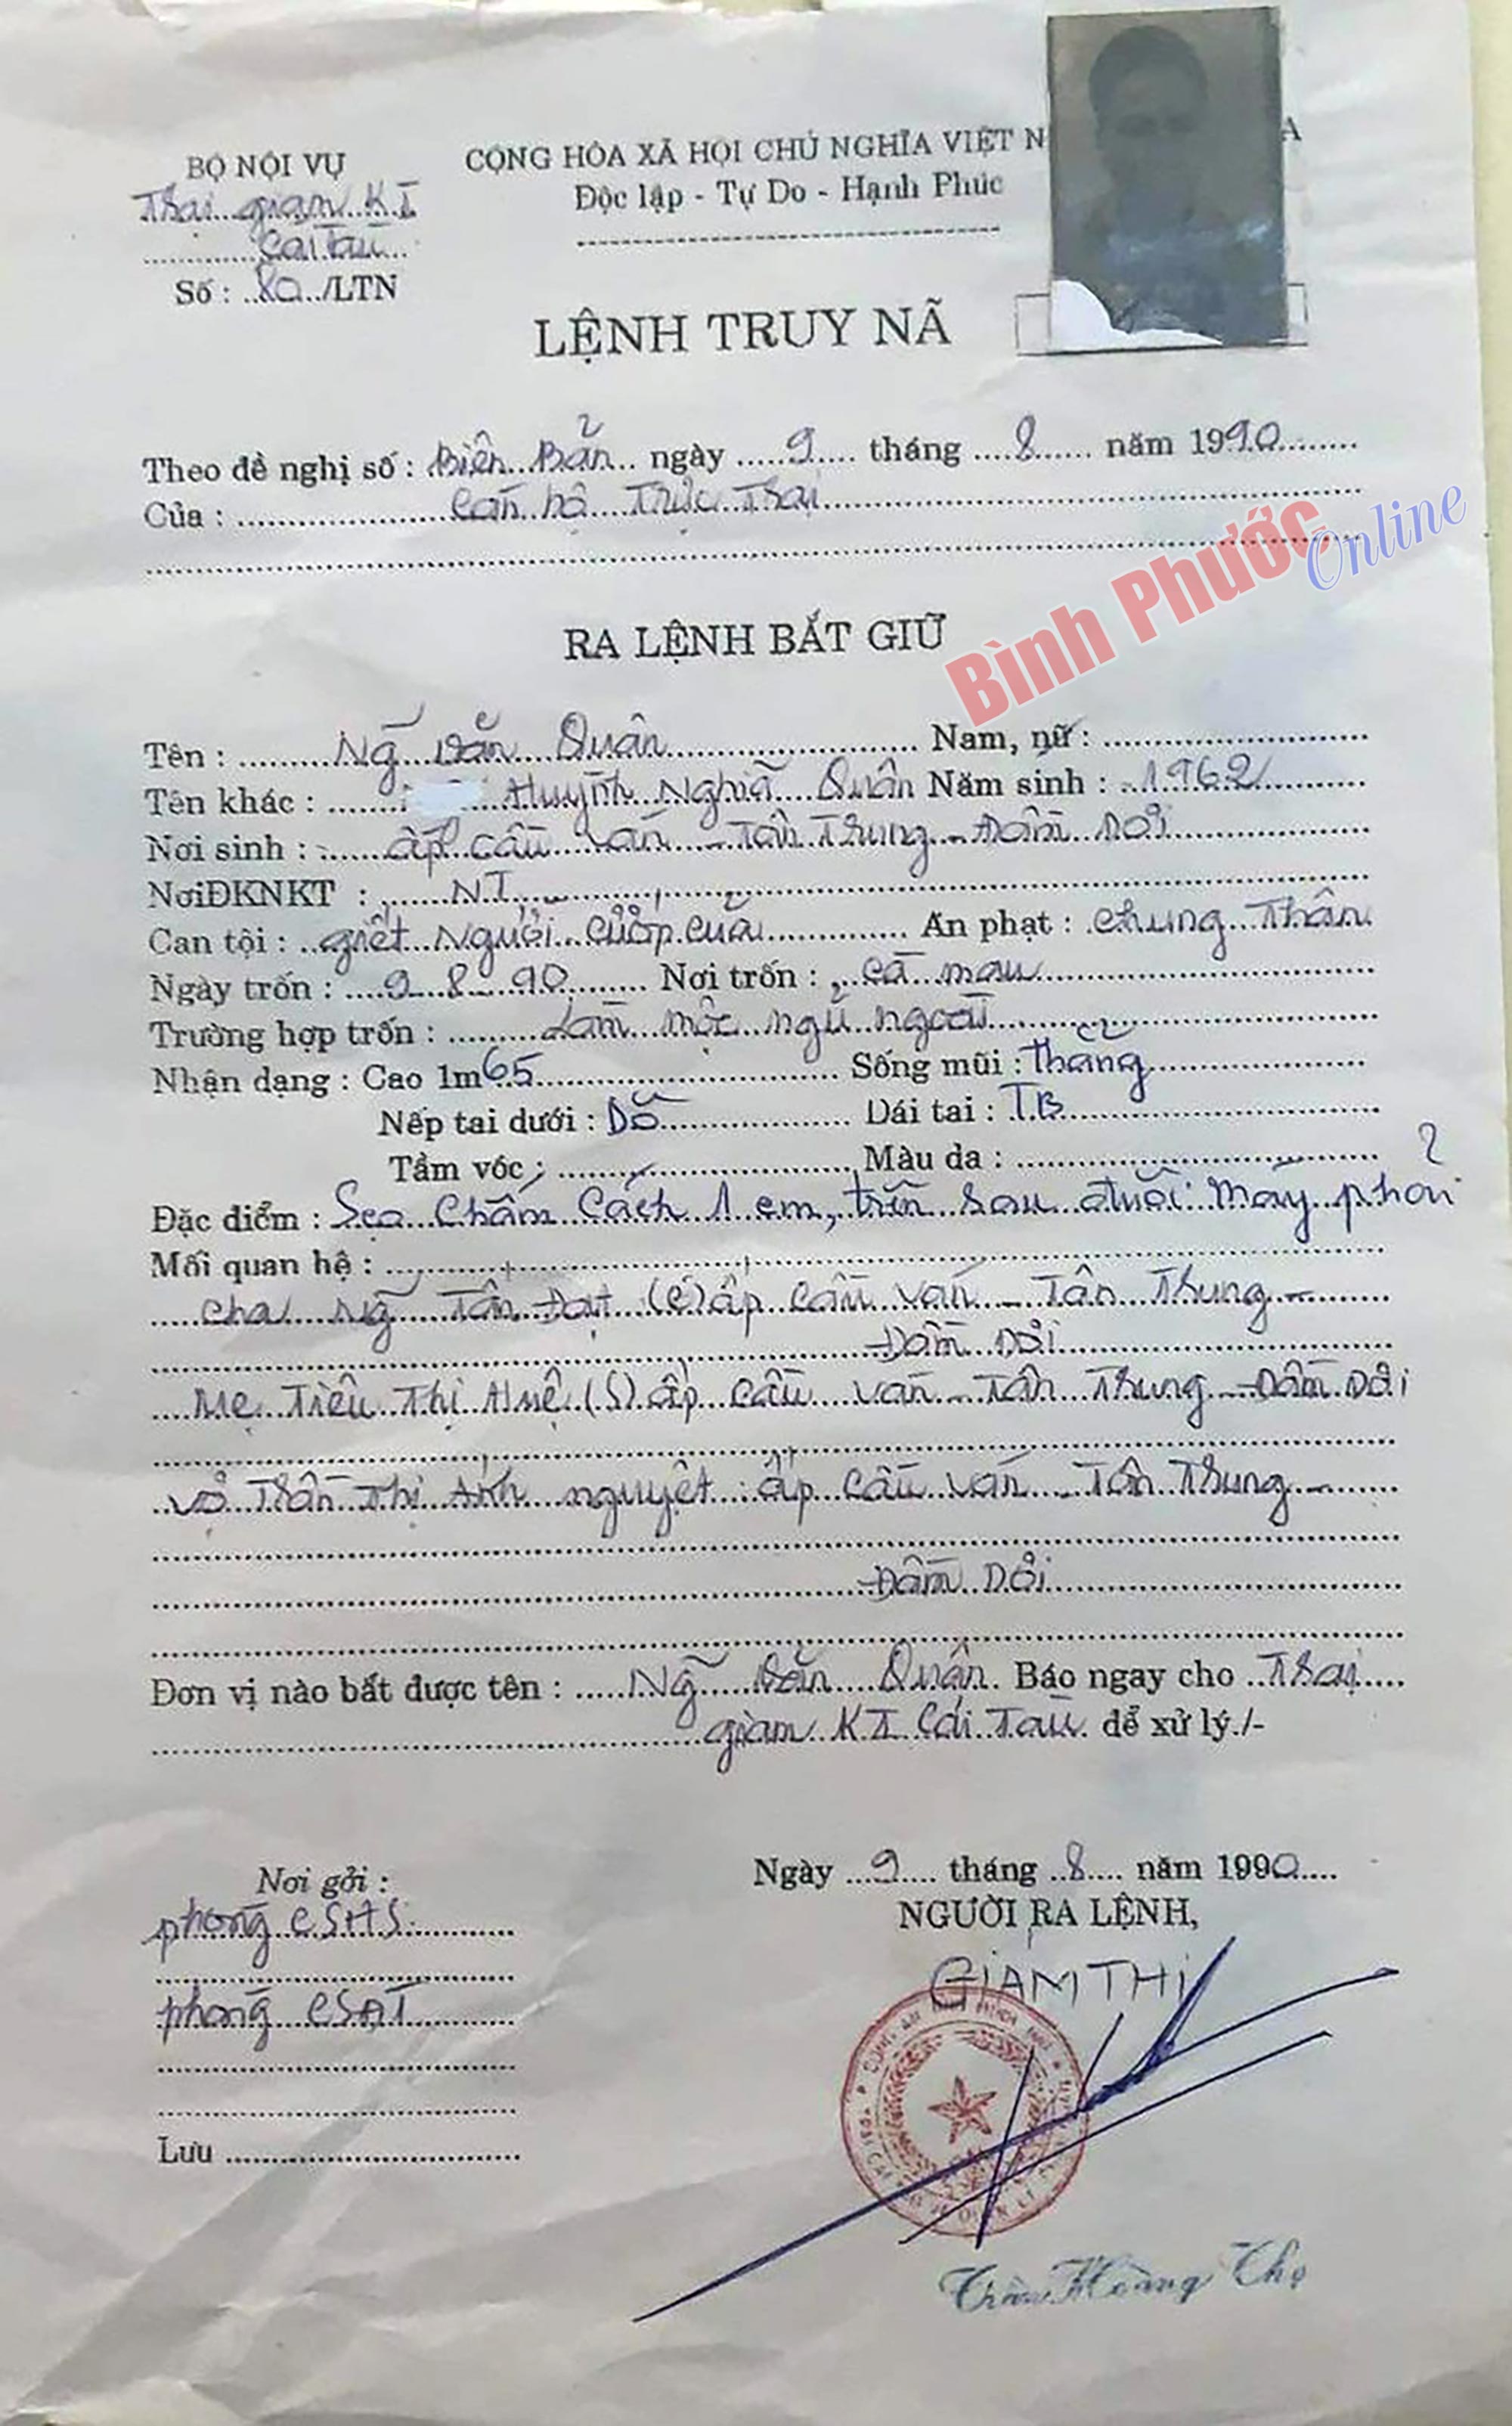 BỘ NỘI VỤ
Trại giam K.I
Cái Tàu
Số : 80 /LTN
CỘNG HÒA XÃ HỘI CHỦ NGHĨA VIỆT N A
Độc lập - Tự Do - Hạnh Phúc
LỆNH TRUY NÃ
Theo đề nghị số : Biên Bản ngày 9 tháng 8 năm 1990
Của : Cán bộ Trực Trại
Bình Phước Online
RA LỆNH BẮT GIỮ
Tên : Ng̃ Văn Quân Nam, nữ :
Tên khác : Huỳnh Nghĩa Quân Năm sinh : 1962
Nơi sinh : ấp Cầu Ván - Tân Trung - Đầm Dơi
NơiĐKNKT : N.T
Can tội : giết Người cướp của Án phạt : Chung Thân
Ngày trốn : 9-8-90 Nơi trốn : Cà mau
Trường hợp trốn : Làm mộc ngủ ngoài
Nhận dạng : Cao 1m65 Sống mũi : Thẳng
Nếp tai dưới : Dỗ Dái tai : T.B
Tầm vóc : Màu da :
Đặc điểm : Sẹo Chấm Cách 1 cm, trên sau đuôi mày phải
Mối quan hệ :
Cha Ng̃ Tấn Đạt (C) ấp Cầu Ván - Tân Trung -
Đầm Dơi
Mẹ Tiêu Thị Huệ (S) ấp Cầu Ván - Tân Trung - Đầm Dơi
Vợ Trần Thị Ánh nguyệt : ấp Cầu Ván - Tân Trung -
Đầm Dơi
Đơn vị nào bắt được tên : Ng̃ Văn Quân. Báo ngay cho Trại
giam K I Cái Tàu để xử lý./-
Ngày 9 tháng 8 năm 1990
NGƯỜI RA LỆNH,
GIÁM THỊ
Trần Hoàng Thọ
Nơi gởi :
phòng CSHS
phòng CSĐT
Lưu